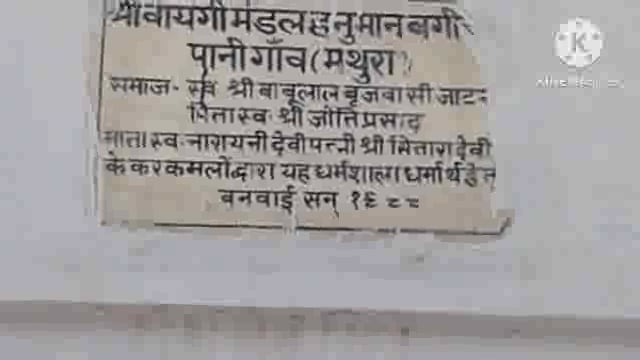 श्री वायगी मंडल हनुमान बगी
पानीगाँव (मथुरा)
समाज - स्व श्री बाबूलाल बृजवासी जाटव
पिता स्व श्री जोतिप्रसाद
माता स्व नारायनी देवी पत्नी श्री सितारा देवी
के कर कमलों द्वारा यह धर्मशाला धर्मार्थ हेतु
बनवाई सन् १९८८